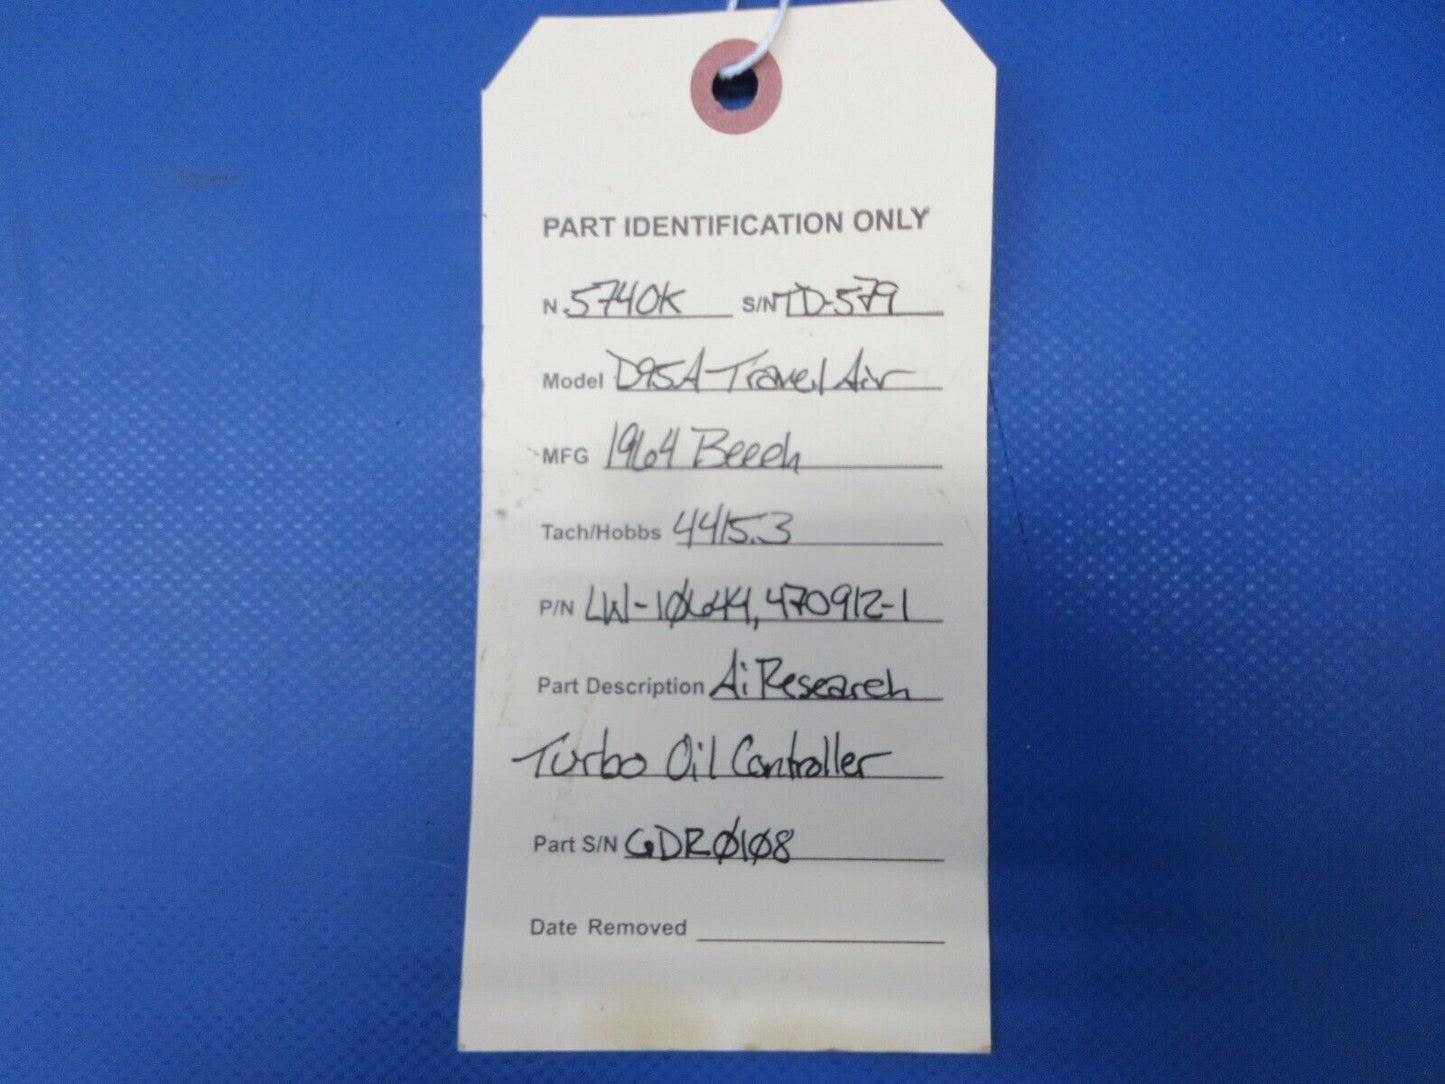 PART IDENTIFICATION ONLY
N 5740K S/N TD-579
Model D95A Travel Air
MFG 1964 Beech
Tach/Hobbs 4415.3
P/N LW-10644, 470912-1
Part Description AiResearch
Turbo Oil Controller
Part S/N GDR0108
Date Removed